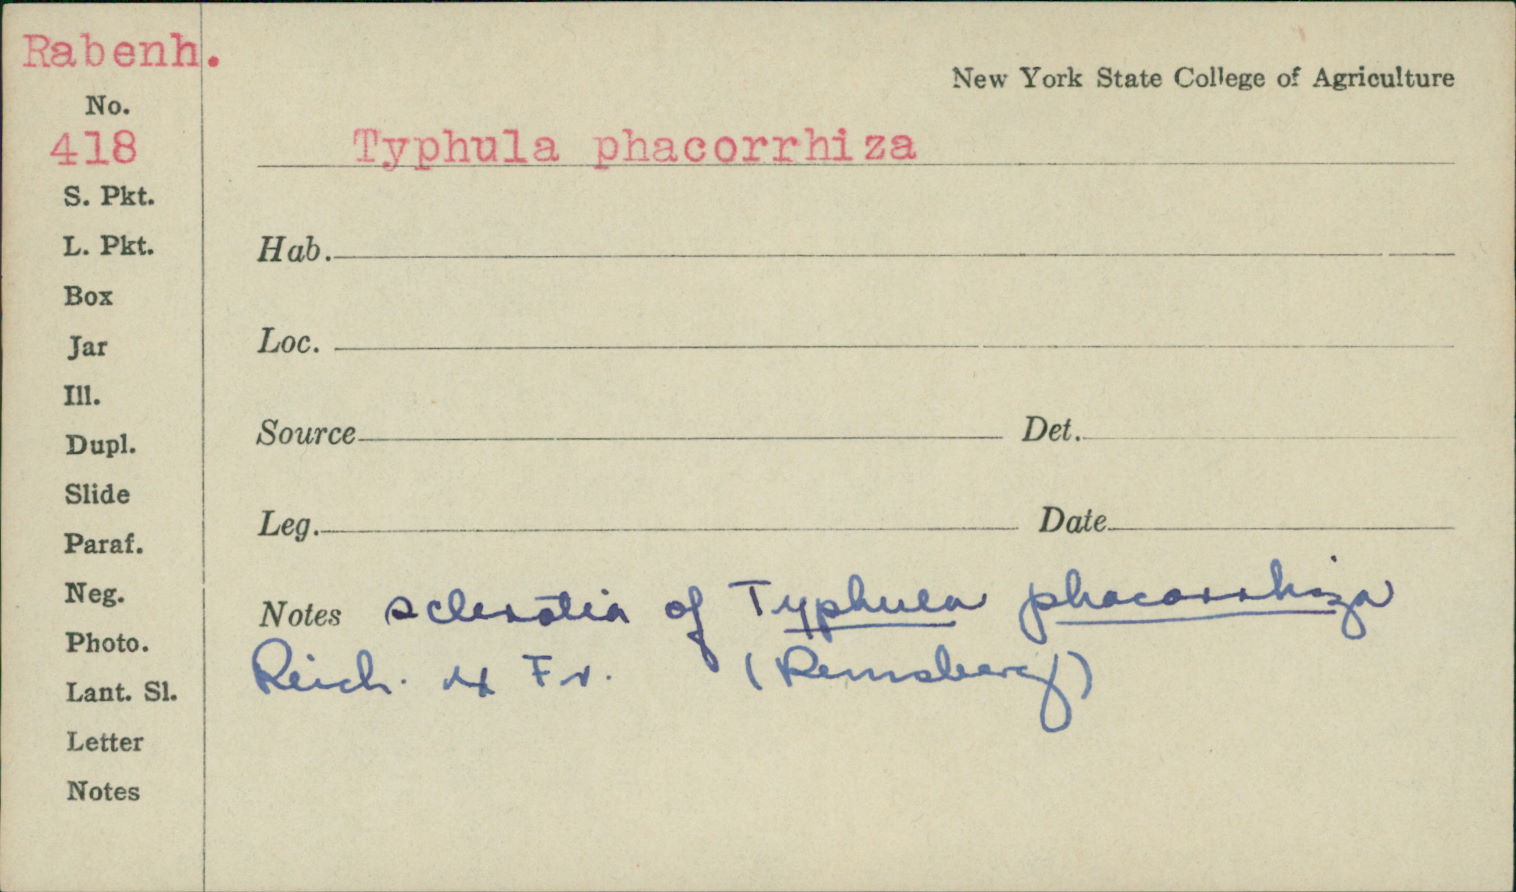 Rabenh.
New York State College of Agriculture
No.
418
Typhula phacorrhiza
S. Pkt.
L. Pkt.
Hab.
Box
Jar
Loc.
Ill.
Dupl.
Source Det.
Slide
Leg. Date
Paraf.
Neg.
Notes sclerotia of Typhula phacorrhiza
Photo.
Reich. ex Fr. (Remsberg)
Lant. Sl.
Letter
Notes